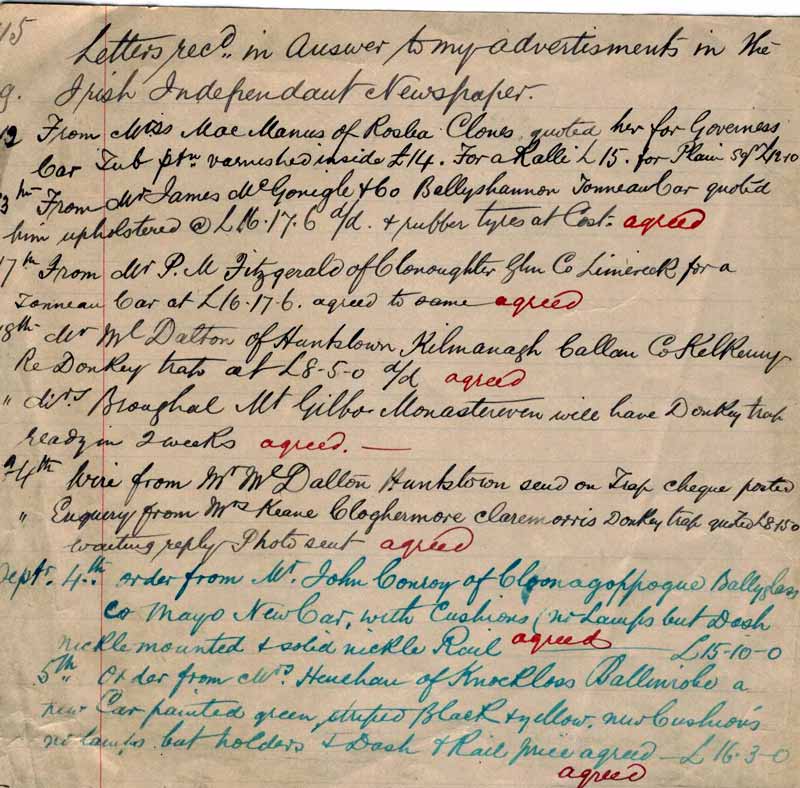 15 Letters recd. in Answer to my advertisments in the
g. Irish Independant Newspaper.
12 From Miss Mac Manus of Roslea Clones quoted her for Governess
Car Tub varnished inside £14. For a Ralli £15. for Plain
From Mr James McGonigle & Co Ballyshannon Tonneau Car quoted
him upholstered @ £16.17.6 d/d. & rubber tyres at Cost. agreed
17th From Mr P. M Fitzgerald of Clonoughter Glin Co Limereck for a
Tonneau Car at £16-17-6. agreed to same agreed
18th Mr Ml Dalton of Huntstown Kilmanagh Callan Co Kilkenny
Re Donkey trap at £8-5-0 d/d agreed
" Broughal Mt Monastereven will have Donkey trap
ready in 2 weeks agreed. —
24th Wire from Mr Ml Dalton Huntstown send on Trap cheque posted
" Enquery from Mrs Keane Cloghermore Claremorris Donkey trap quoted £8-15-0
waiting reply Photo sent agreed
Septr. 4th order from Mr. John Conroy of Cloonagoppogue Ballyglass
Co Mayo New Car, with Cushions (no Lamps but Dash
nickle mounted & solid nickle Rail agreed £15-10-0
5th Order from Mrs. Henehan of Knockloss Ballinrobe a
new Car painted green, striped Black & yellow. new Cushions
no lamps. but holders & Dash & Rail price agreed — £16-3-0
agreed